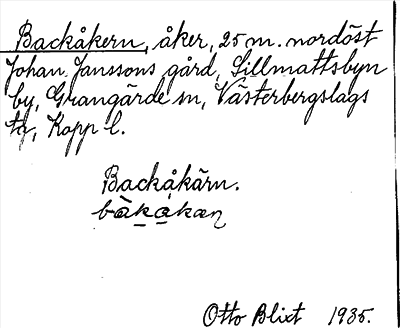 Backåkern, åker, 25 m. nordöst
Johan Janssons gård, Sillmattsbyn
by, Grangärde sn, Västerbergslags
tg, Kopp l.
Backåkärn.
Otto Blixt 1935.